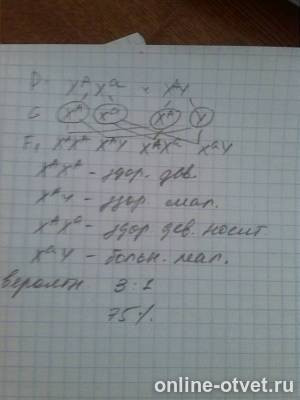 P: XᴬXᵃ × XᴬY
G Xᴬ Xᵃ Xᴬ Y
F₁ XᴬXᴬ XᴬY XᴬXᵃ XᵃY
XᴬXᴬ - здор. дев.
XᴬY - здор. мал.
XᴬXᵃ - здор дев. носит
XᵃY - больн. мал.
вероятн 3:1
75%.
online-otvet.ru